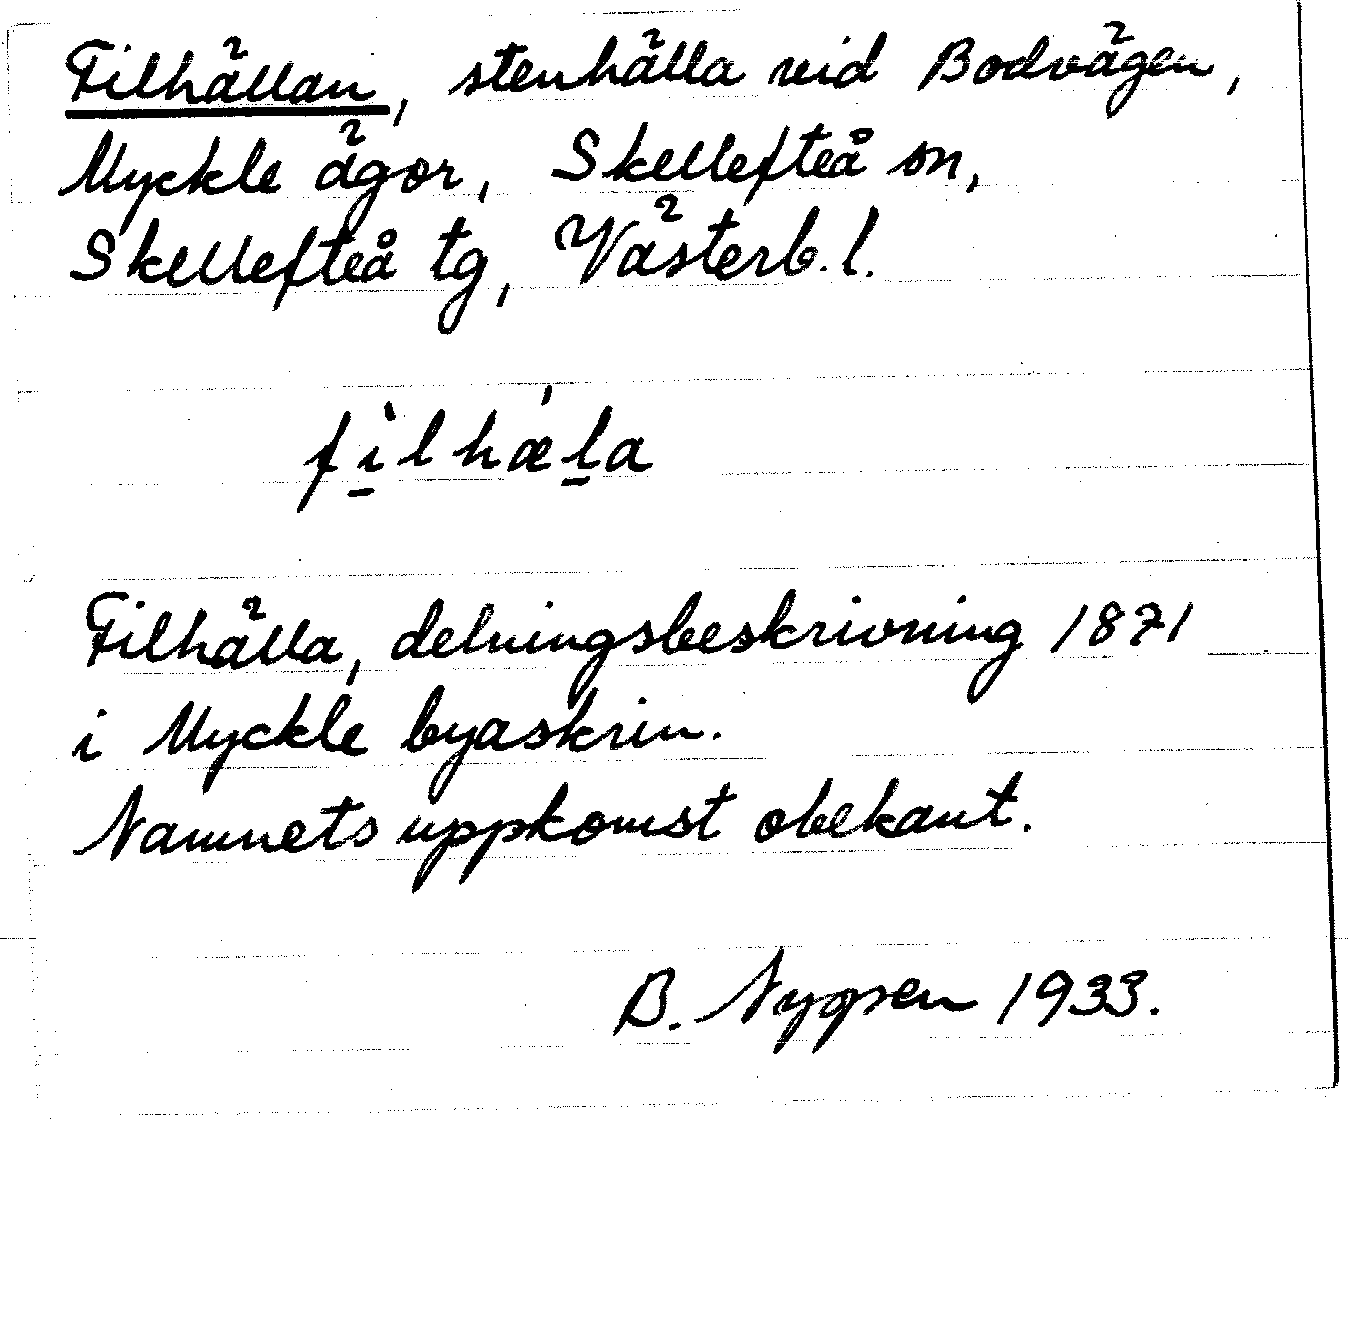 Filhällan, stenhälla vid Bodvägen,
Myckle ägor, Skellefteå sn,
Skellefteå tg, Västerb. l.
fì̲lhǽl̲a
Filhälla, delningsbeskrivning 1871
i Myckle byaskrin.
Namnets uppkomst obekant.
B. 1933.